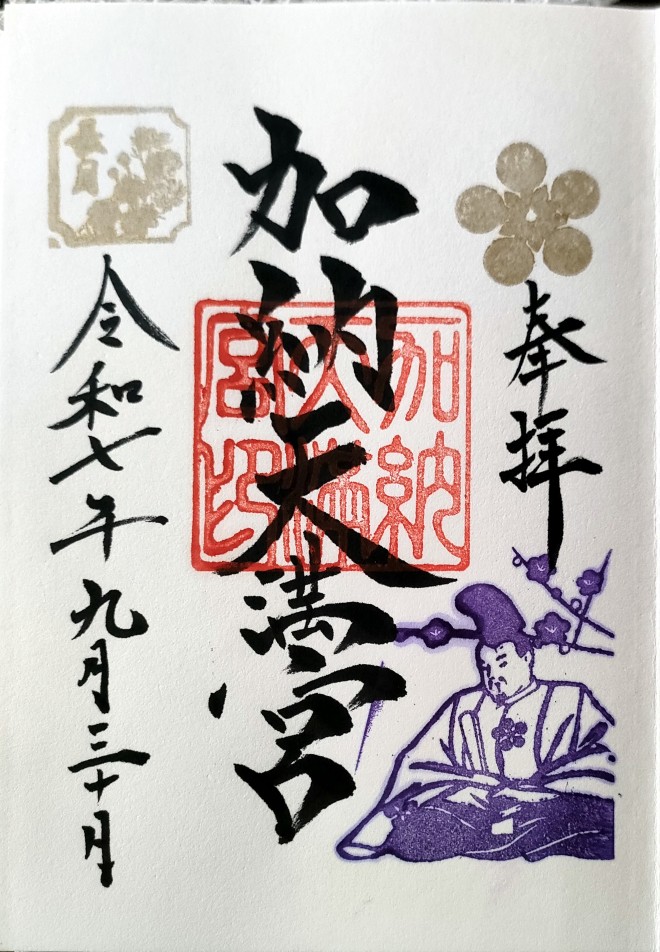 奉拝
加納天満宮
加納
天満
宮印
長月
令和七年九月三十日